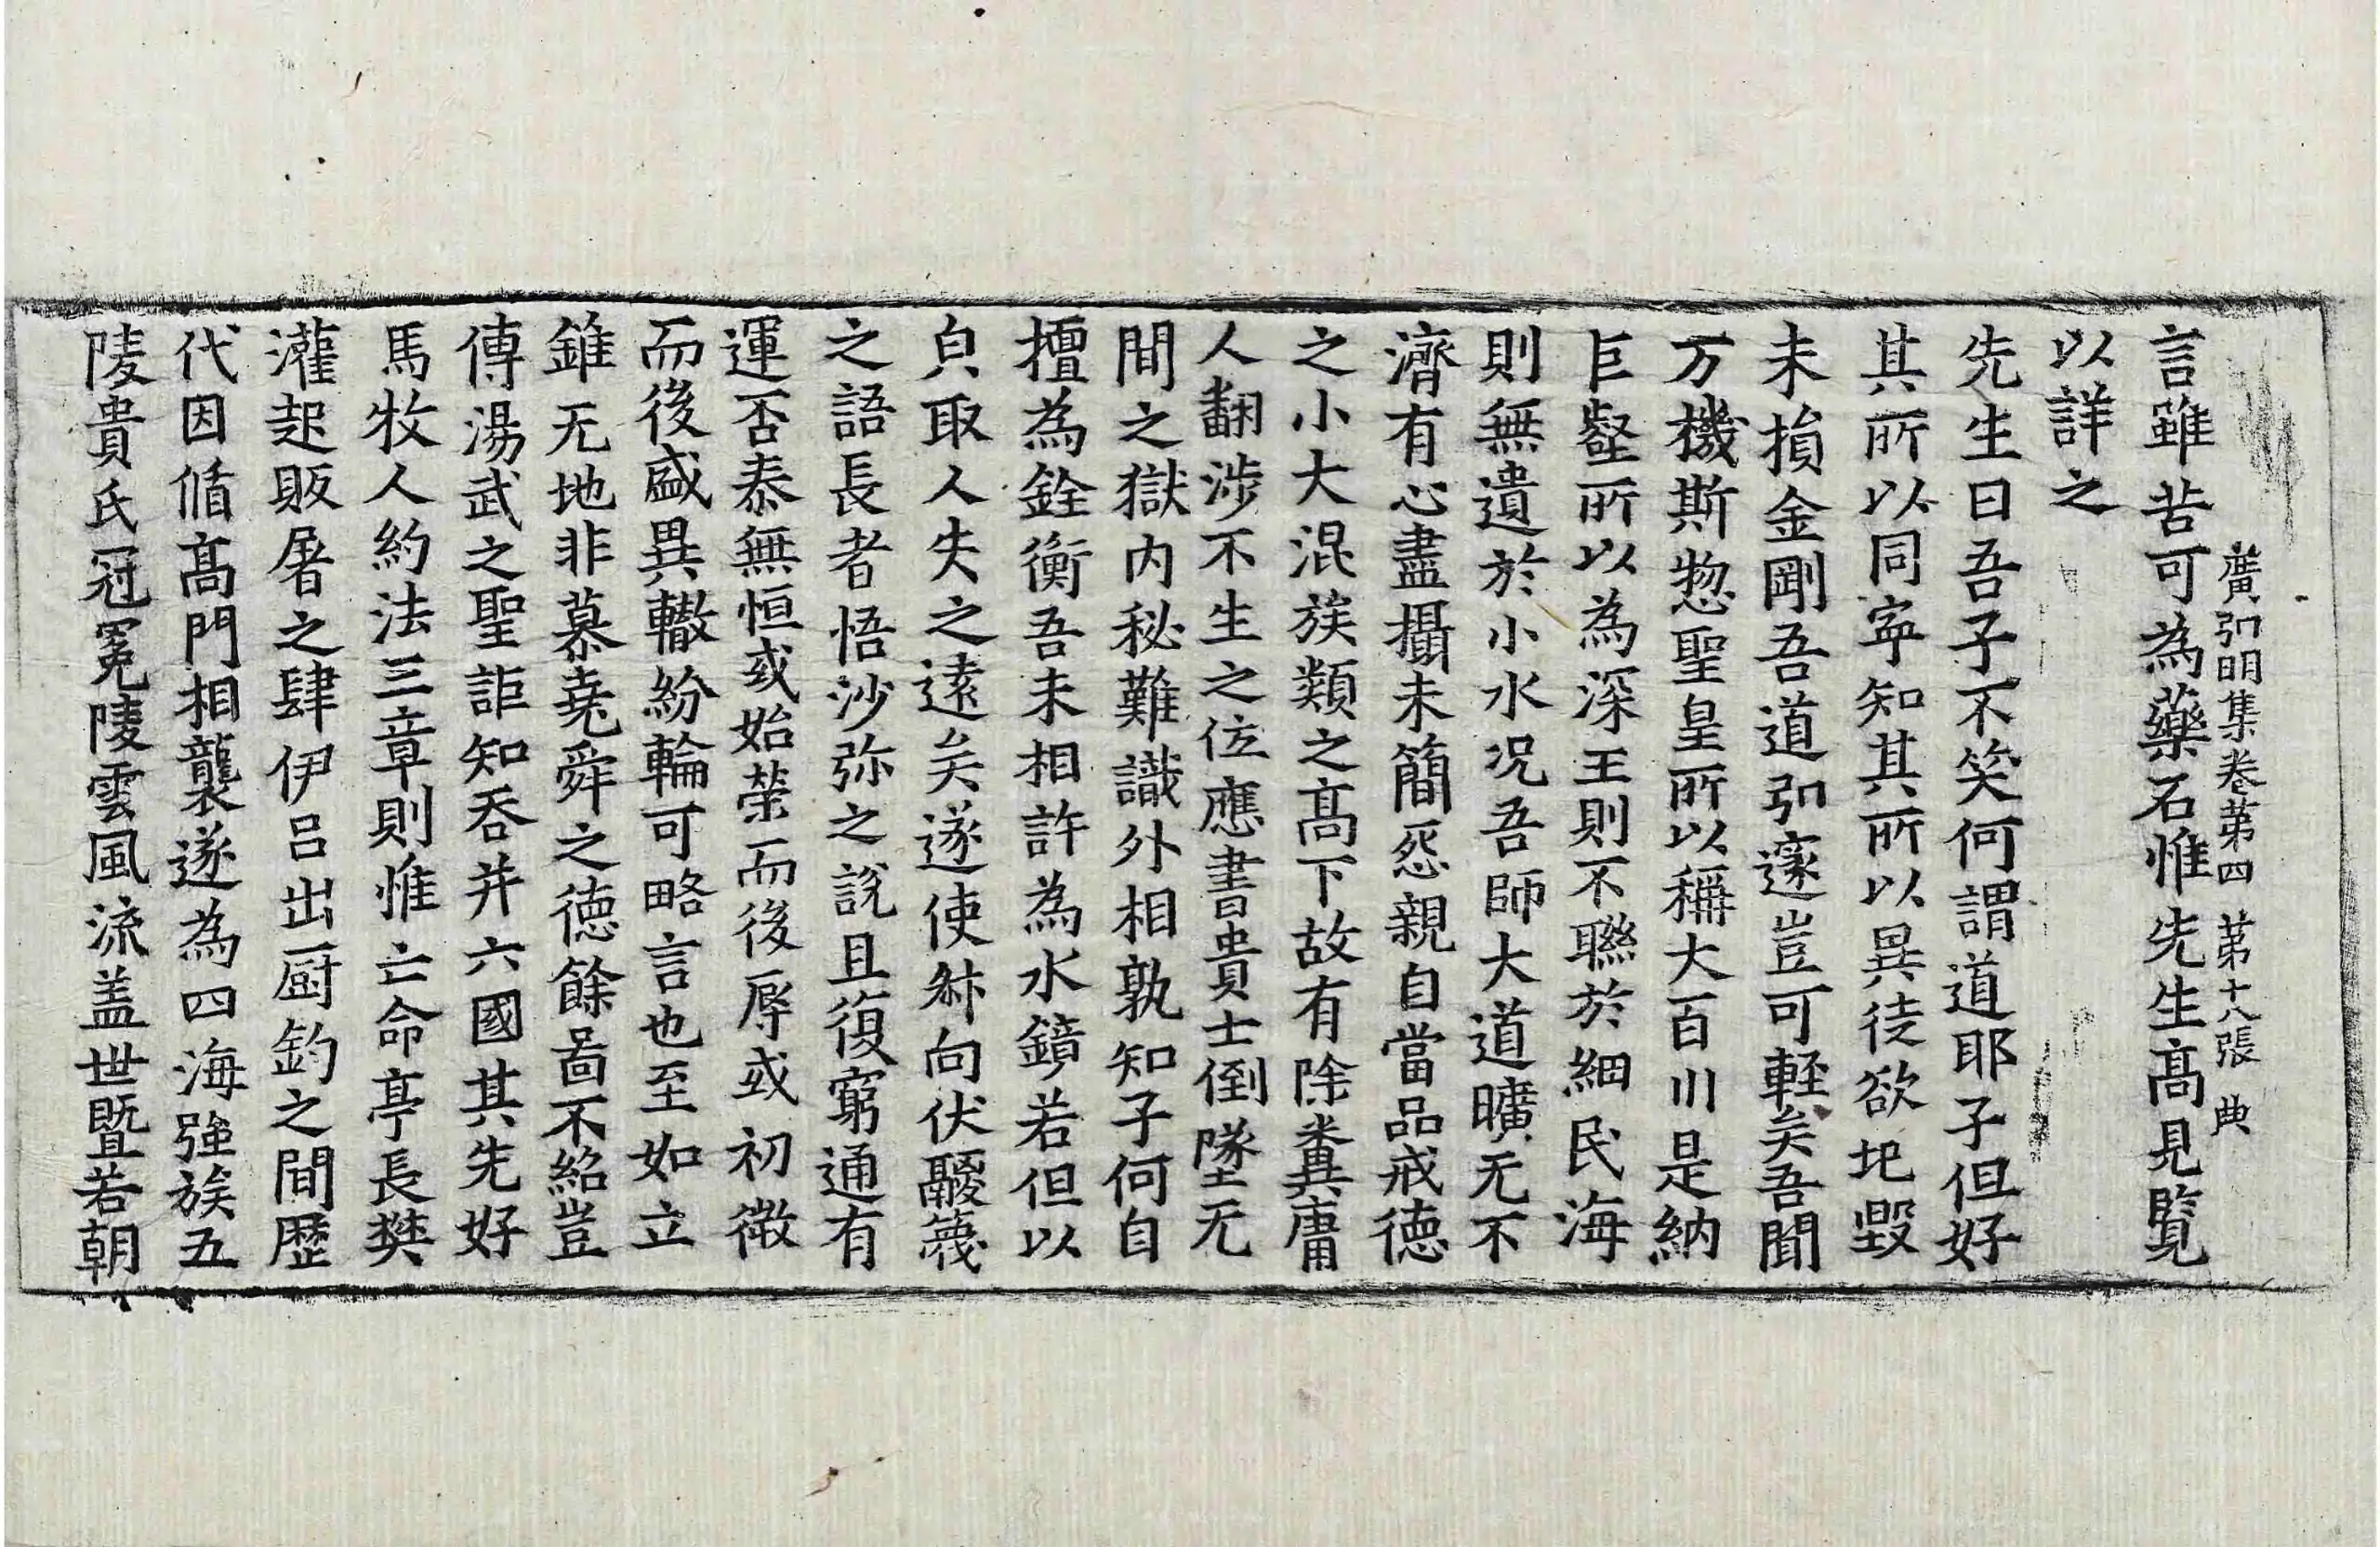 廣弘明集卷第四 第十八張 典
言雖苦可為藥石惟先生高見覽
以詳之
先生曰吾子不笑何謂道耶子但好
其所以同寧知其所以異徒欲圯毀
未損金剛吾道弘邃豈可輕矣吾聞
万機斯惣聖皇所以稱大百川是納
巨壑所以為深王則不聯於細民海
則無遺於小水況吾師大道曠无不
濟有心盡攝未簡怨親自當品戒德
之小大混族類之高下故有除糞庸
人翻涉不生之位應書貴士倒墜无
間之獄内秘難識外相孰知子何自
擅為銓衡吾未相許為水鏡若但以
皃取人失之遠矣遂使叅向伏鬷篾
之語長者悟沙弥之說且復窮通有
運否泰無恒或始榮而後辱或初微
而後盛異轍紛輪可略言也至如立
錐无地非慕堯舜之德餘啚不紹豈
傳湯武之聖詎知吞并六國其先好
馬牧人約法三章則惟亡命亭長樊
灌起販屠之肆伊呂出厨釣之間歷
代因脩高門相襲遂為四海強族五
陵貴氏冠冕陵雲風流盖世暨若朝